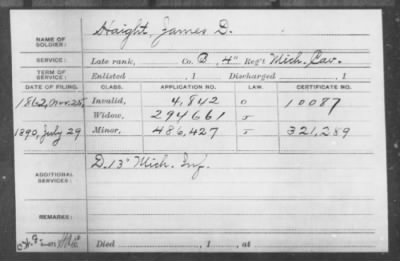 NAME OF SOLDIER: Haight, James D.
SERVICE: Late rank, Co. B, 4" Reg't Mich. Cav.
TERM OF SERVICE: Enlisted , 1 Discharged , 1
DATE OF FILING. CLASS. APPLICATION NO. LAW. CERTIFICATE NO.
1862, Nov. 25 Invalid, 4,842 0 10087
Widow, 294661 J
1890, July 29 Minor, 486,427 J 321,289
ADDITIONAL SERVICES: D. 13" Mich. Inf.
REMARKS:
Died , 1 , at